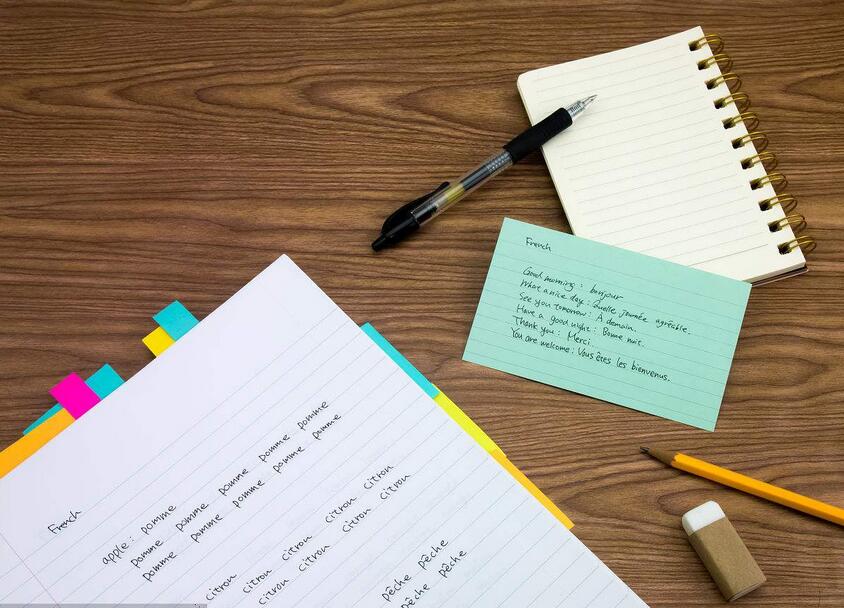 French
Good morning : bonjour
What a nice day : Quelle journée agréable.
See you tomorrow : À demain.
Have a good night : Bonne nuit.
Thank you : Merci.
You are welcome : Vous êtes les bienvenus.
French
apple : pomme pomme pomme pomme pomme
pomme pomme pomme pomme pomme
pomme
citron citron citron citron citron
citron citron citron citron
pêche pêche
pêche pêche